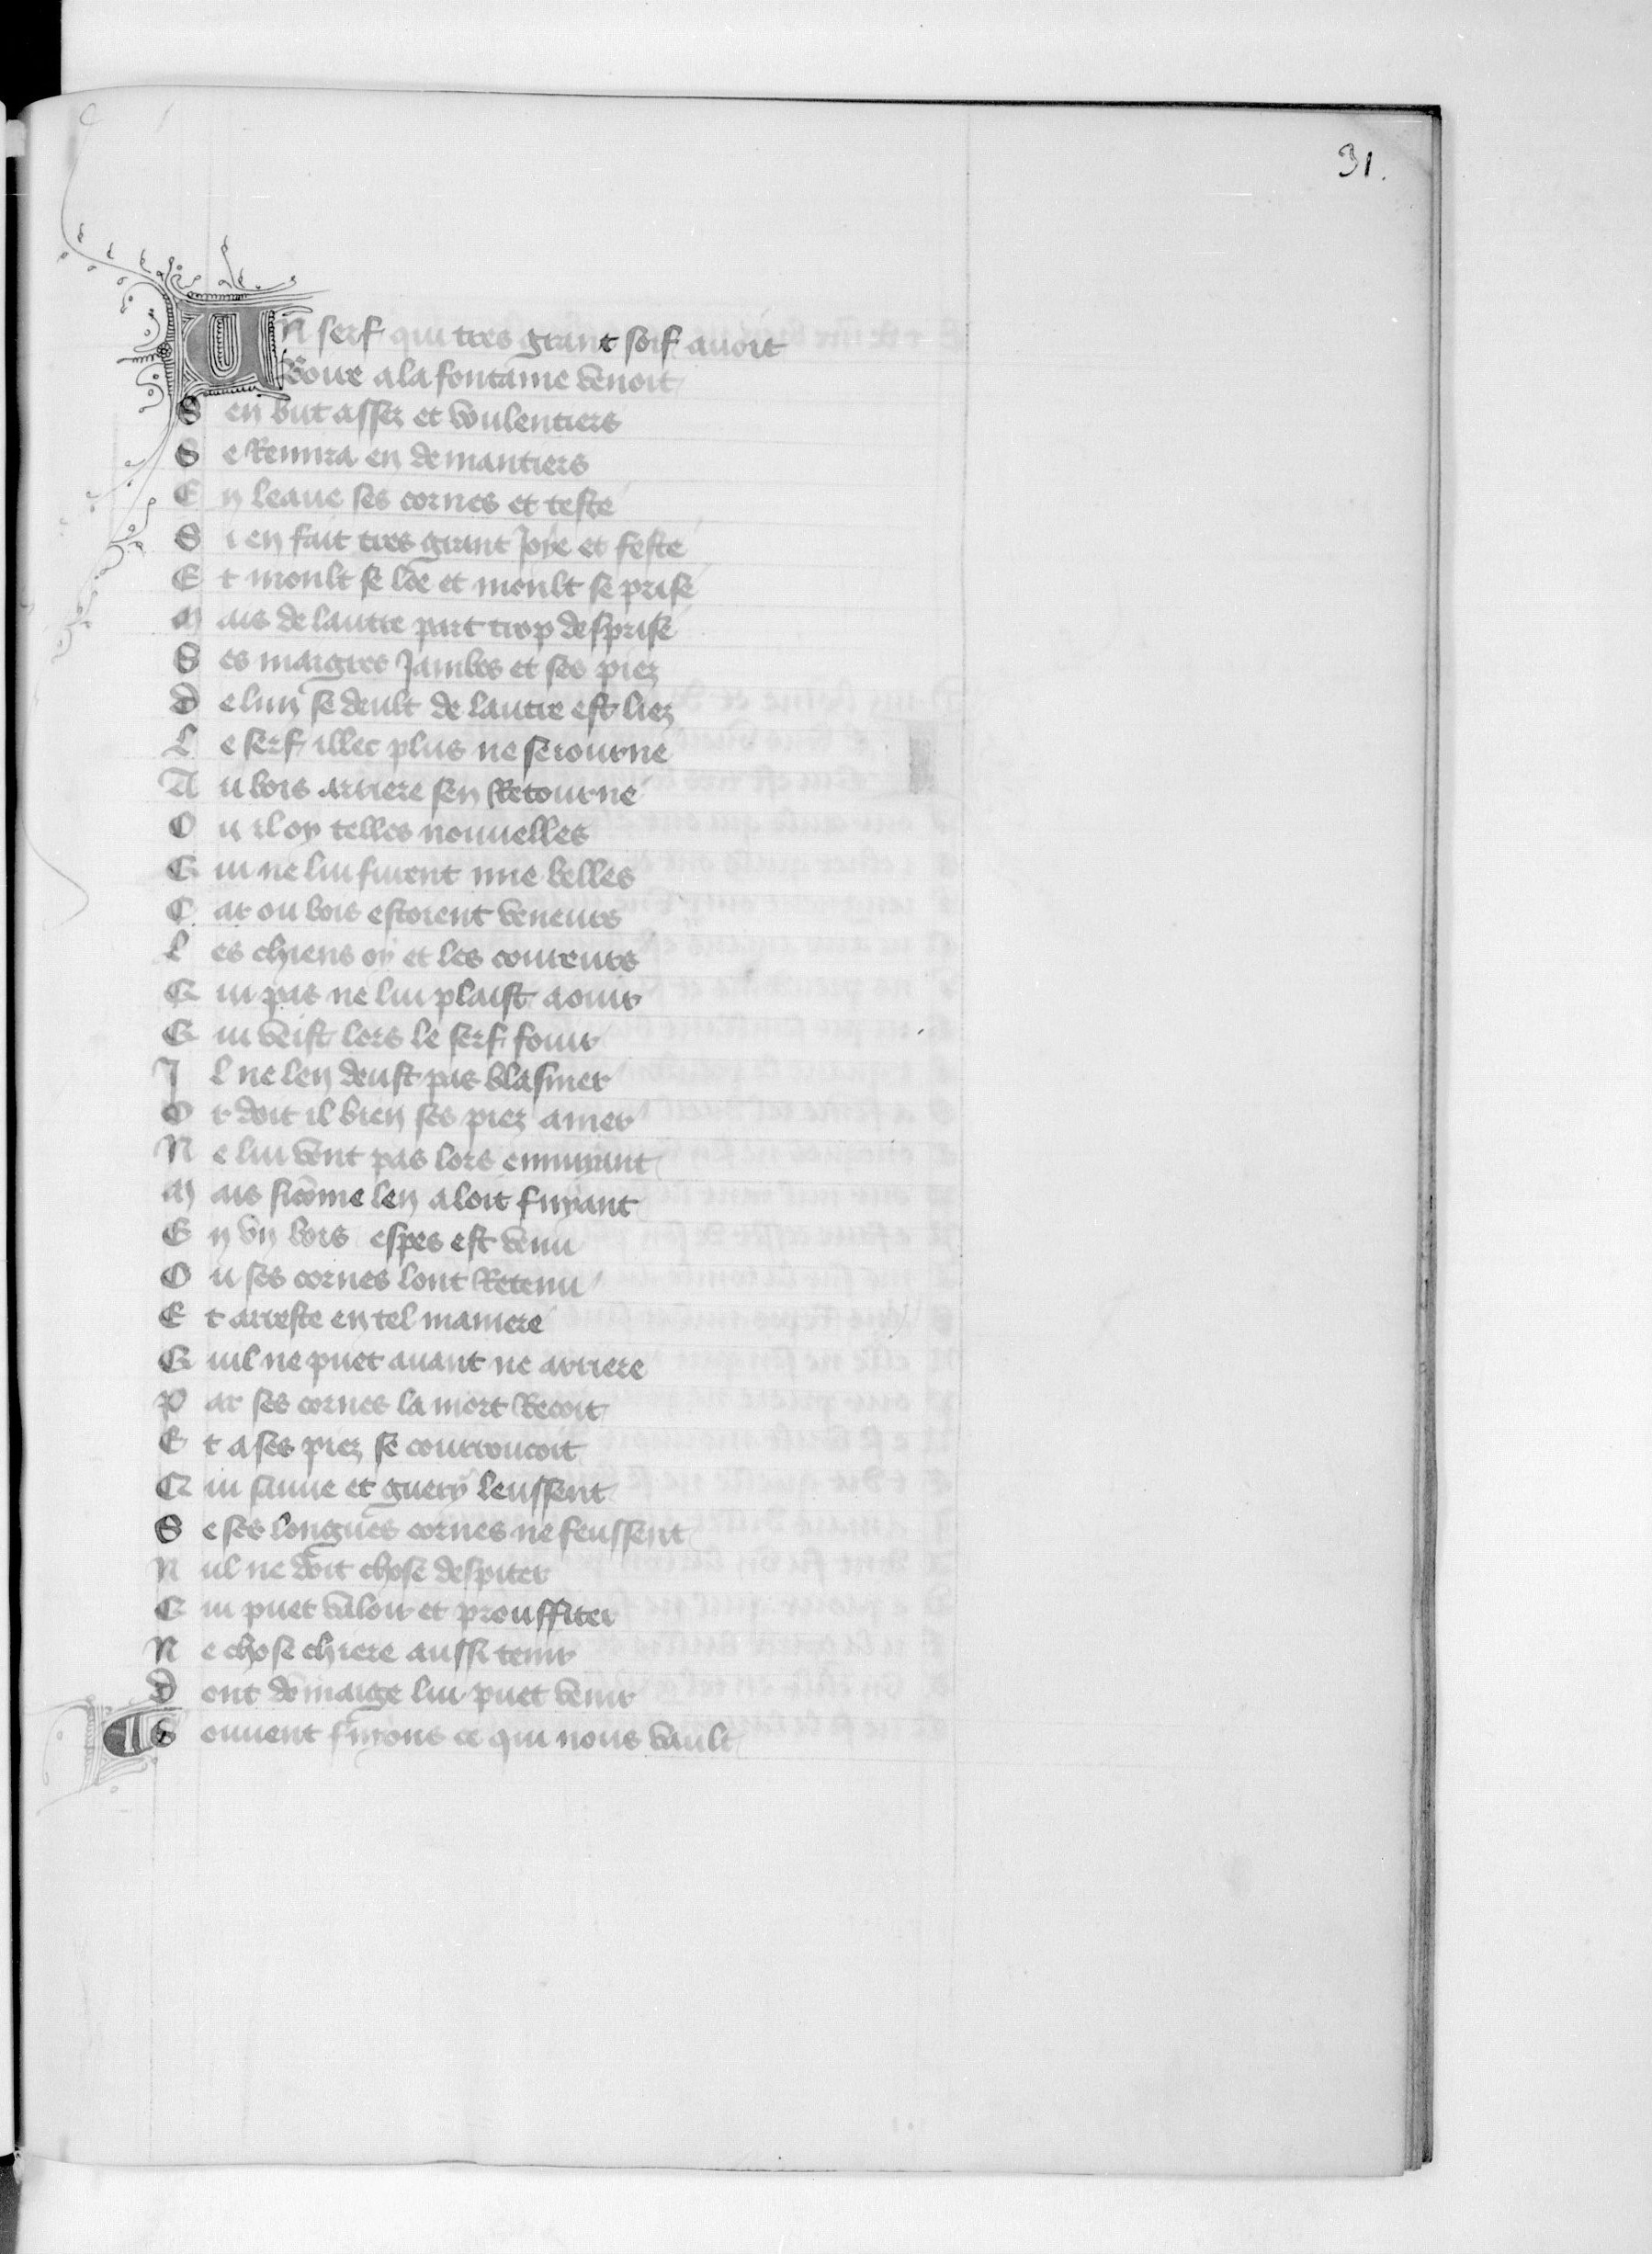 31.
Un serf qui tres grant soif auoit
Boire a la fontaine venoit
S en but assez et voulentiers
S e Remira en demantiers
E n leaue ses cornes et teste
S i en fait tres grant Joye et feste
E t moult se loe et moult se prise
M ais de lautre part trop desprise
S es maigres Jambes et ses piez
D e lun se deult de lautre est liez
L e serf illec plus ne seiourne
A u bois arriere sen Retourne
O u il oy telles nouuelles
Q ui ne lui furent mie belles
C ar ou bois estoient veneurs
L es chiens oy et les coureurs
Q ui pas ne lui plaist a ouir
Q ui veist lors le serf fouir
I l ne len deust pas blasmer
O r doit il bien ses piez amer
N e lui vont pas lors ennuyant
M ais sicõme len aloit fuyant
E n vn bois espes est venu
O u ses cornes lont Retenu
E t arreste en tel maniere
Q uil ne puet auant ne arriere
P ar ses cornes la mort Recoit
E t a ses piez se courroucoit
Q ui sauue et guery leussent
S e ses longues cornes ne feussent
N ul ne doit chose despiter
Q ui puet valoir et prouffiter
N e chose chiere aussi tenir
D ont dõmaige lui puet venir
S ouuent fuyons ce qui nous vault